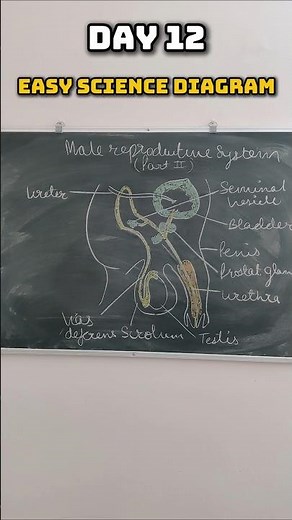 DAY 12
EASY SCIENCE DIAGRAM
Male reproductive System
(Part II)
Ureter
Seminal
vesicle
Bladder
Penis
Prostat glan
Urethra
Vas
deferens Scrotum
Testis